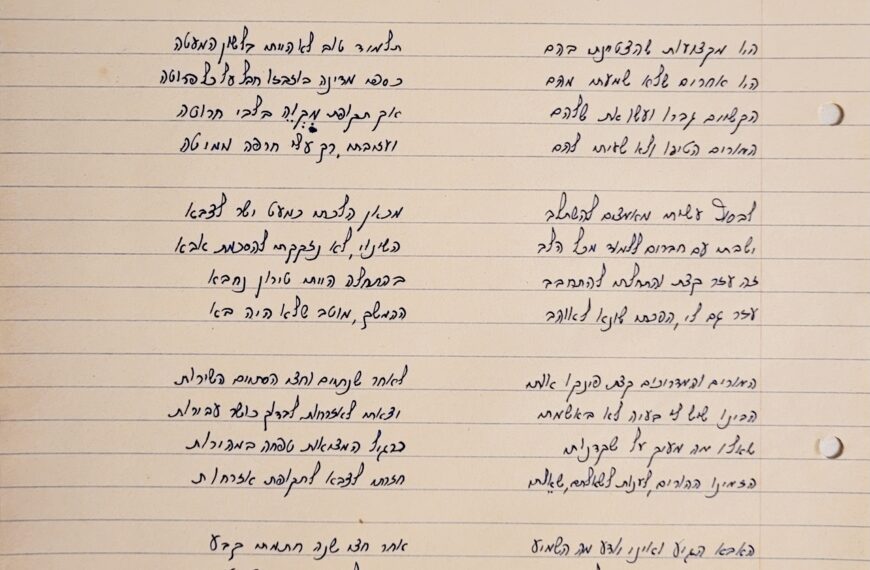 היו מקצועות שהצטיינת בהם
היו אחרים שלא שמעת מהם
הקשיים גברו ועשו את שלהם
המורים הטיפו ולא שעית להם
לבסוף עשית מאמצים להשתלב
ישבת עם חברים ללמוד מכל הלב
זה עזר קצת והתחלת להתחבב
עזר גם לי, הפכת שונא לאוהב
המורים והמדריכים קצת פינקו אותי
הבינו שיש לי בעיה לא באשמתי
שאלו מה מעיק על שקדנותי
הזמינו ההורים, לענות לשאלתם, שאלתי
האבא הגיע ואינו יודע מה השמיע
תלמיד טוב לא היית בלשון המעטה
כספי מדינה בוזבזו חבל על כל פרוטה
אך תקופת מקוה בלבי חרוטה
ועזבתי, רק עלי חרפה ממיטה
מכאן הלכתי כמעט ישר לצבא
השינוי, לא נזקקתי להסכמת אבא
בהתחלה הייתי טירון נחבא
ההמשך, מוטב שלא היה בא
לאחר שנתיים וחצי הסתיים השירות
יצאתי לאזרחות לבדוק כושר עבירות
כרגיל המציאות טפחה במהירות
חזרתי לצבא לתקופת אזרחות
אחר חצי שנה חתמתי קבע